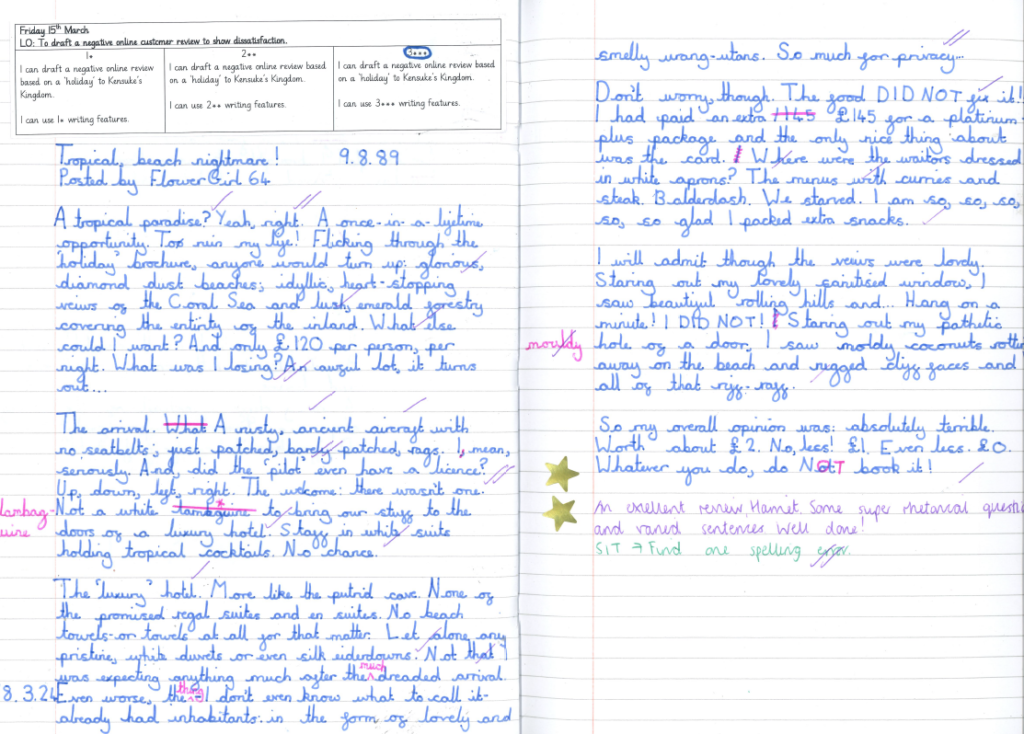 Friday 15th March
LO: To draft a negative online customer review to show dissatisfaction.
1*
I can draft a negative online review
based on a 'holiday' to Kensuke's
Kingdom.
I can use 1* writing features.
2**
I can draft a negative online review based
on a 'holiday' to Kensuke's Kingdom.
I can use 2** writing features.
3***
I can draft a negative online review based
on a 'holiday' to Kensuke's Kingdom.
I can use 3*** writing features.
Tropical, beach nightmare! 9.8.89
Posted by FlowerGirl 64
A tropical paradise? Yeah, right. A once-in-a-lifetime
opportunity. To ruin my life! Flicking through the
'holiday' brochure, anyone would turn up: glorious,
diamond dust beaches; idyllic, heart-stopping
veiws of the Coral Sea and lush, emerald forestry
covering the entirity of the inland. What else
could I want? And only £120 per person, per
night. What was I losing? An awful lot, it turns
out...
The arrival. What A rusty, ancient aircraft with
no seatbelts; just patched, barely patched, rags. I, mean,
seriously. And, did the 'pilot' even have a licence?
Up, down, left, right. The welcome: there wasn't one.
lambag-
uine
Not a white lambaguine * to bring our stuff to the
doors of a luxury hotel. Staff in white suits
holding tropical cocktails. No chance.
The 'luxury' hotel. More like the putrid cave. None of
the promised regal suites and en suites. No beach
towels-or towels at all for that matter. Let alone any
pristine, white duvets or even silk eiderdowns. Not that I
was expecting anything much after the much dreaded arrival.
8.3.24 Even worse, the thing - I don't even know what to call it-
already had inhabitants: in the form of lovely and
smelly urang-utans. So much for privacy...
Don't worry, though. The good DID NOT fix it!
I had paid an extra 1145 £145 for a platinum-
plus package and the only nice thing about
was the card. Where were the waitors dressed
in white aprons? The menus with curries and
steak. Balderdash. We starved. I am so, so, so,
so, so glad I packed extra snacks.
I will admit though the veiws were lovely.
Staring out my lovely sanitised window, I
saw beautiful rolling hills and... Hang on a
minute! I DID NOT! Staring out my pathetic
mouldy
hole of a door, I saw moldy coconuts rotting
away on the beach and rugged cliff faces and
all of that riff-raff.
So my overall opinion was: absolutely terrible.
Worth about £2. No, less! £1. Even less. £0.
Whatever you do, do NOT book it!
An excellent review, Hamit. Some super rhetorical questi
and varied sentences. Well done!
SIT → Find one spelling error.